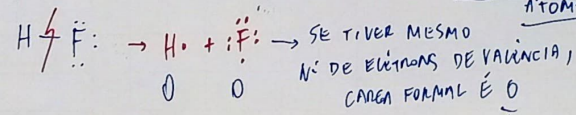 ÁTOM
H F: → H· + :F: → SE TIVER MESMO
Nº DE ELÉTRONS DE VALÊNCIA,
0 0 CARGA FORMAL É 0